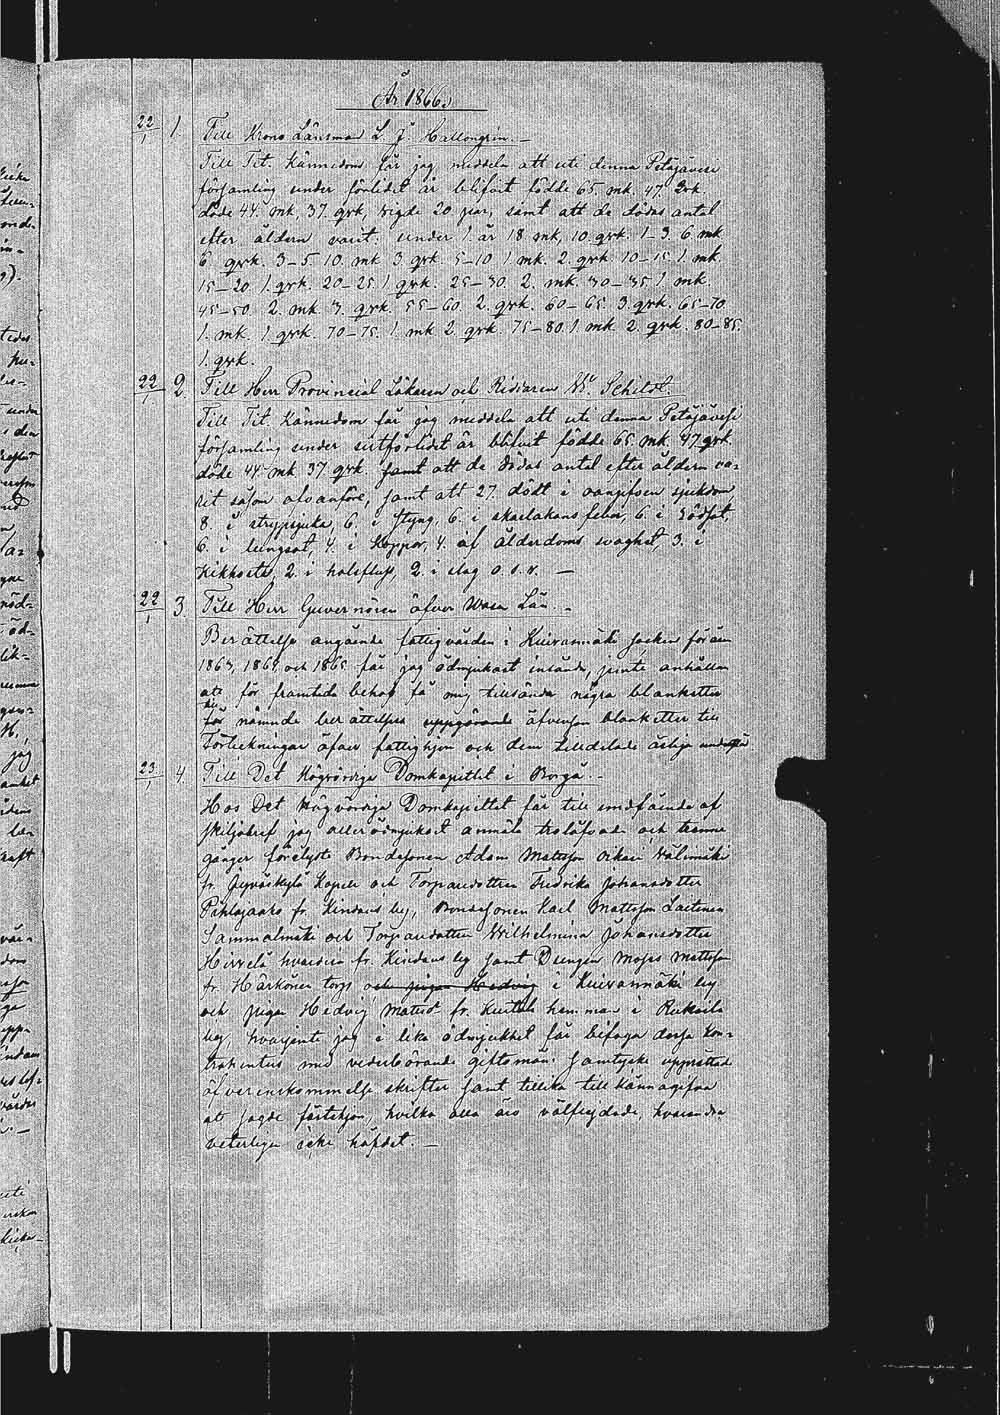 År 1866.
22/1 1. Till Krono Länsman L. J. Hallongrén. —
Till Tit. kännedom får jag meddela att uti denna Petäjävesi
församling under förlidet år blifvit födde 65. mk. 47. qvk.
döde 44. mk, 37. qvk, vigde 20 par, samt att de dödas antal
efter åldern varit: under 1. år 18 mk, 10. qvk. 1–3. 6 mk
6. qvk. 3–5 10. mk 3 qvk 5–10 1 mk. 2. qvk. 10–15. 1. mk.
15–20. 1. qvk. 20–25. 1 qvk. 25–30. 2. mk. 30–35. 1 mk.
45–50. 2. mk. 3. qvk. 55–60. 2. qvk. 60–65. 3. qvk. 65–70.
1. mk. 1. qvk. 70–75. 1. mk. 2 qvk. 75–80. 1 mk. 2. qvk. 80–85.
1. qvk.
22/1 2. Till Herr Provincial Läkaren och Riddaren W. Schildt.
Till Tit. kännedom får jag meddela att uti denna Petäjävesi
församling under sistförlidet år blifvit födde 65. mk. 47. qvk.
döde 44 mk 37. qvk. samt att de dödas antal efter åldern va-
rit såsom ofvanföre, samt att 27. dödt i oangifven sjukdom,
8. i strypsjuka, 6. i styng, 6. i skarlakans feber, 6. i rödsot,
6. i lungsot, 4. i koppor, 4. af ålderdoms svaghet, 3. i
kikhosta, 2. i halsfluss, 2. i slag o. s. v. —
22/1 3. Till Herr Guvernören öfver Wasa Län. —
Berättelse angående fattigvården i Kuivasmäki socken för åren
1863, 1864 och 1865 får jag ödmjukast insända, jemte anhållan
att för framtida behof få mig tillsända några blanketter
till för nämnde berättelses uppgörande äfvensom blanketter till
Förteckningar öfver fattighjon och dem tilldelade årliga understöd
23/1 4. Till Det Högvördiga Domkapitlet i Borgå. —
Hos Det Högvördiga Domkapitlet får till undfående af
skiljobref jag allerödmjukast anmäla trolofvade och trenne
gånger förelyste Bondesonen Adam Mattsson Oikari Välimäki
fr. Jyväskylä Kapell och Torparedottren Fredrika Johansdotter
fr. Kindaus by, Bondesonen Karl Mattsson Laitinen
Sammalmäki och Torparedottren Wilhelmina Johansdotter
Hirvelä hvardera fr. Kindaus by samt Drengen Moses Mattsson
fr. Härkönen torp och pigan Hedvig i Kuivasmäki by
och pigan Hedvig Matsd. fr. hemman i
by, hvarjemte jag i lika ödmjukhet får bifoga dessa kon-
trahenters med vederbörande giftomäns samtycke upprättade
öfverenskommelse skrifter samt tillika tillkännagifva
att sagde fästehjon, hvilka alla äro välfrejdade, hvarandra
veterligen icke häfdat. —